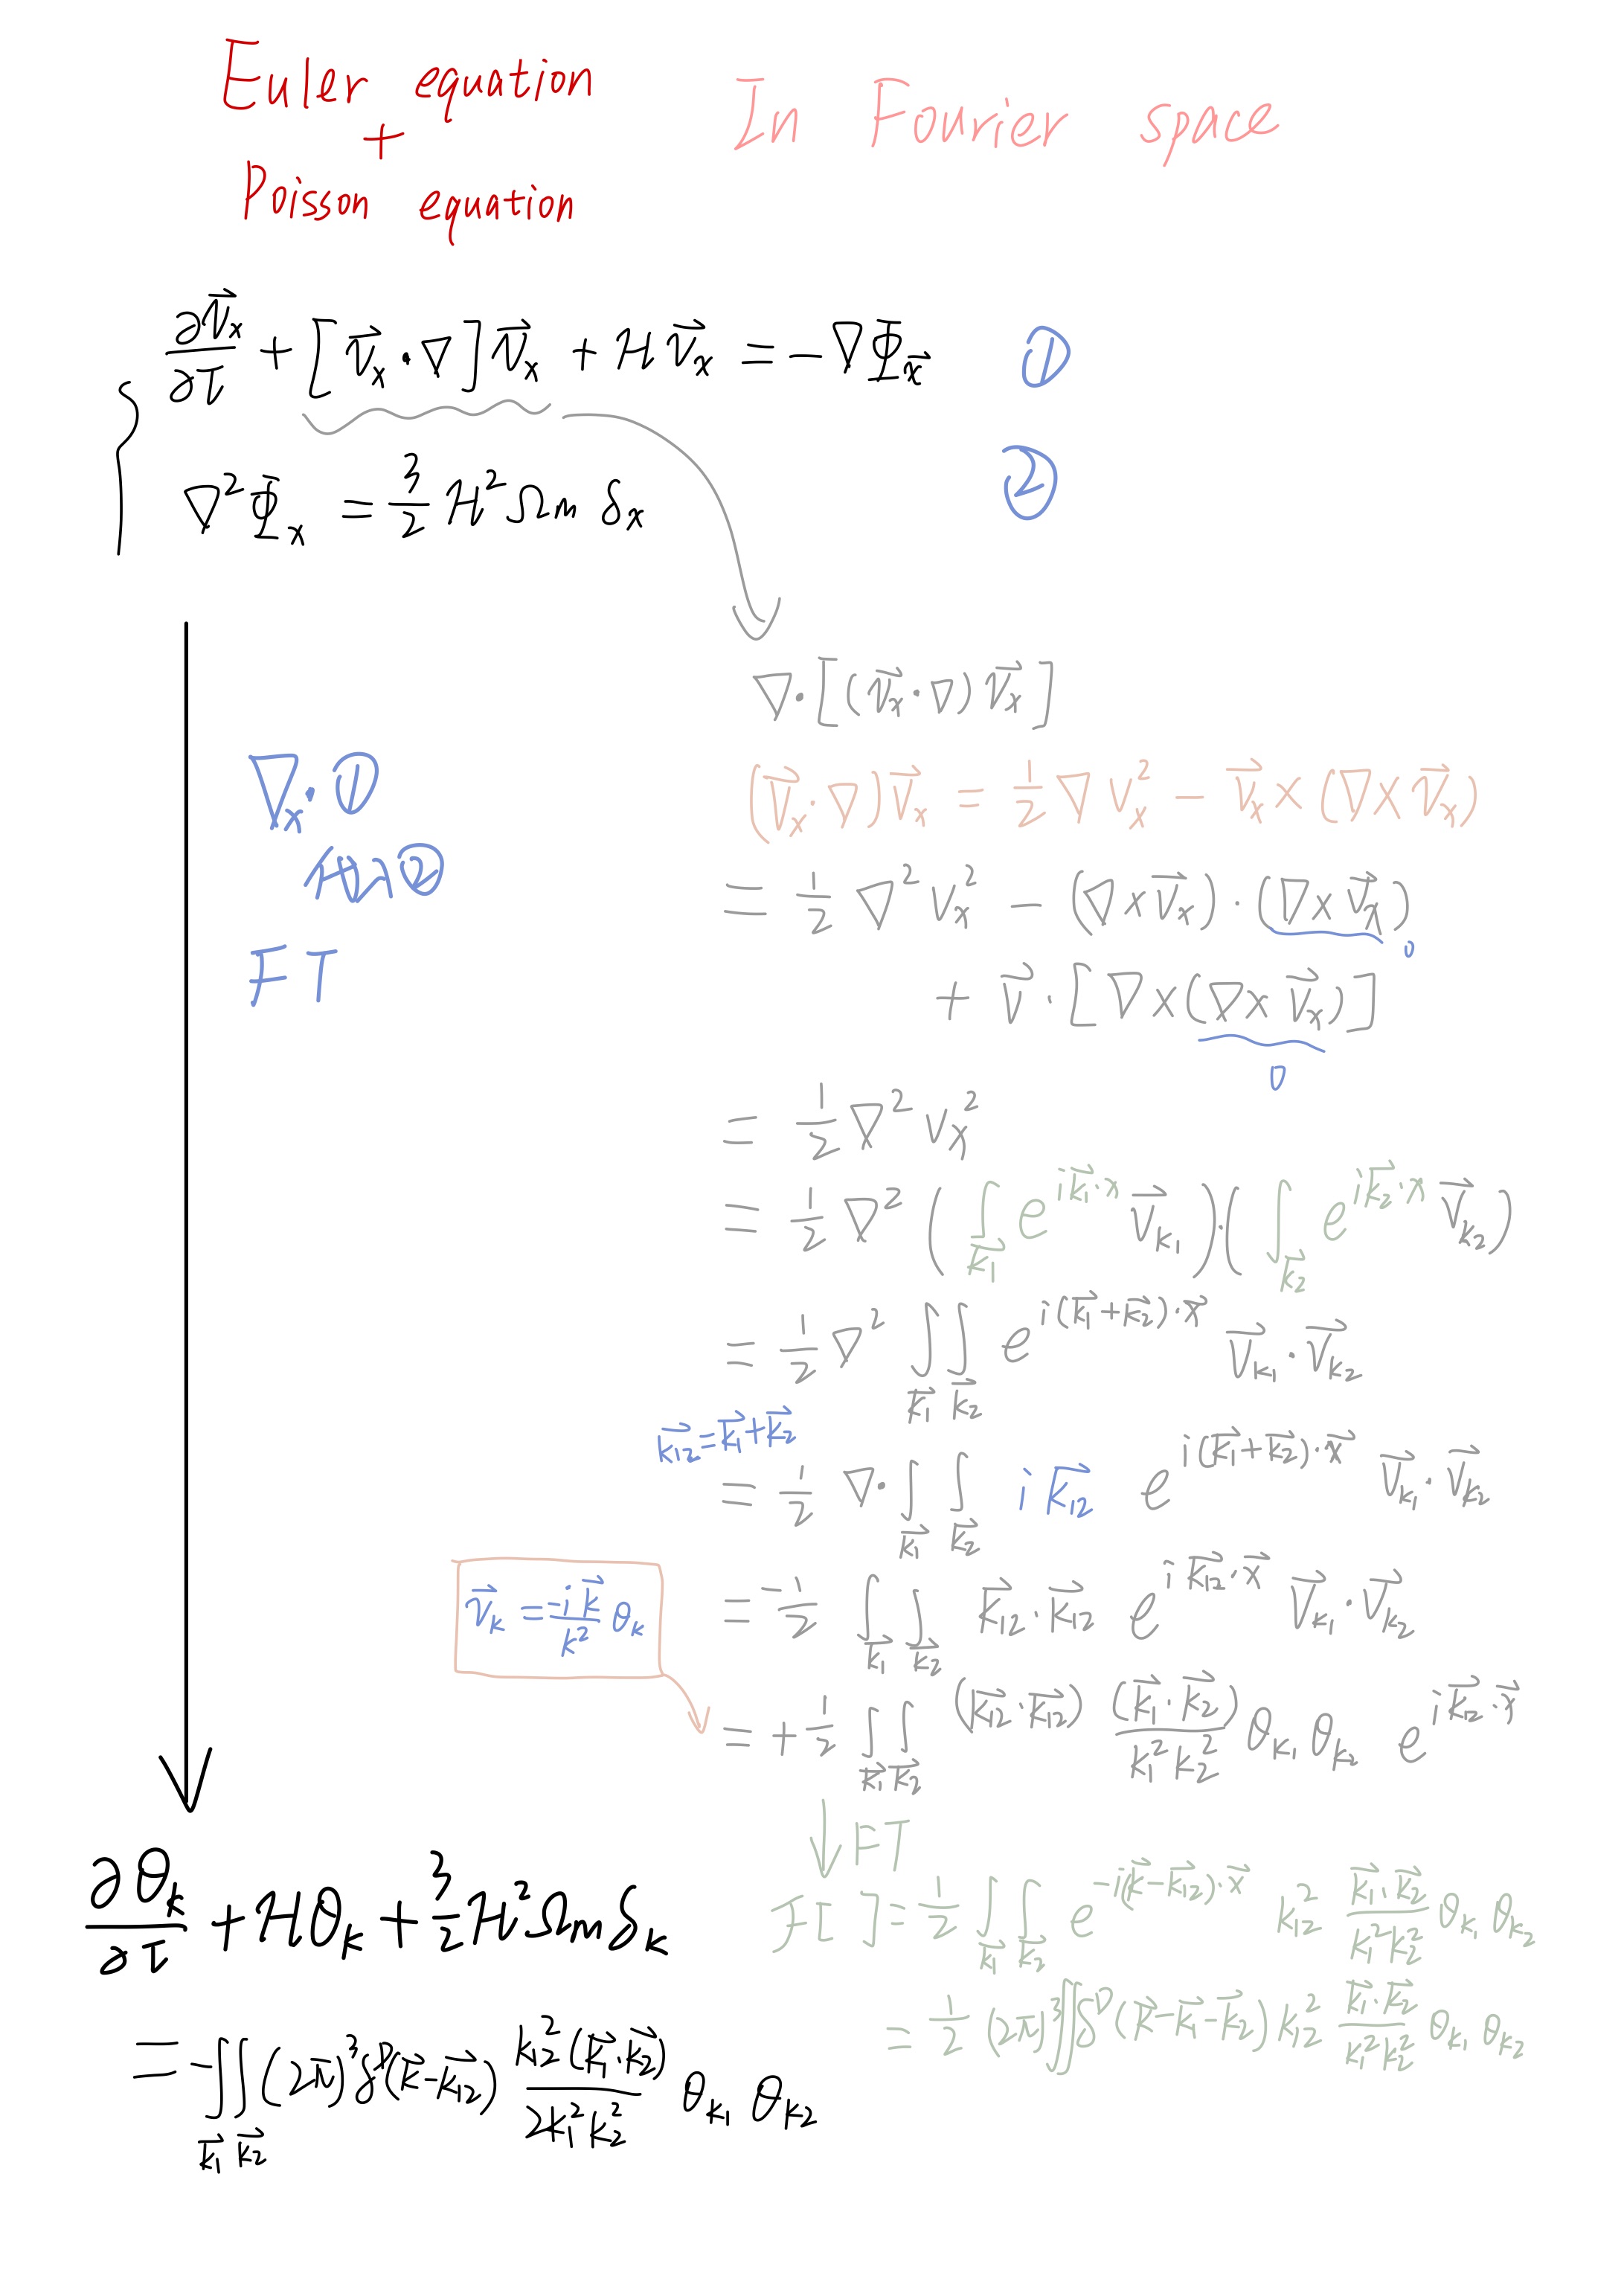 Euler equation
+
Poisson equation
In Fourier space
∂v⃗ₓ/∂τ + [v⃗ₓ·∇]v⃗ₓ + ℋv⃗ₓ = −∇Φ_x⃗ ①
∇²Φₓ = 3/2 ℋ²Ωm δₓ ②
∇ₓ·①
②
FT
∇·[(v⃗ₓ·∇)v⃗ₓ]
(v⃗ₓ·∇)v⃗ₓ = 1/2 ∇vₓ² − v⃗ₓ×(∇×v⃗ₓ)
= 1/2 ∇²vₓ² − (∇×v⃗ₓ)·(∇×v⃗ₓ) 0
+ v⃗·[∇×(∇×v⃗ₓ)]
0
= 1/2 ∇²vₓ²
= 1/2 ∇²(∫_k⃗₁ e^{ik⃗₁·x} v⃗_k₁)·(∫_k⃗₂ e^{ik⃗₂·x} v⃗_k₂)
= 1/2 ∇² ∫_k⃗₁∫_k⃗₂ e^{i(k⃗₁+k⃗₂)·x⃗} v⃗_k₁·v⃗_k₂
k⃗₁₂=k⃗₁+k⃗₂
= 1/2 ∇·∫_k⃗₁∫_k⃗₂ i k⃗₁₂ e^{i(k⃗₁+k⃗₂)·x⃗} v⃗_k₁·v⃗_k₂
= −1/2 ∫_k⃗₁∫_k⃗₂ k⃗₁₂·k⃗₁₂ e^{ik⃗₁₂·x⃗} v⃗_k₁·v⃗_k₂
v⃗_k = −ik⃗/k² θ_k
= +1/2 ∫_k⃗₁∫_k⃗₂ (k⃗₁₂·k⃗₁₂) (k⃗₁·k⃗₂)/(k₁²k₂²) θ_k₁ θ_k₂ e^{ik⃗₁₂·x⃗}
↓FT
ℱ[ ] = 1/2 ∫_k⃗₁∫_k⃗₂ e^{−i(k⃗−k⃗₁₂)·x⃗} k₁₂² (k⃗₁·k⃗₂)/(k₁²k₂²) θ_k₁ θ_k₂
= 1/2 (2π)³∬δ^D(k⃗−k⃗₁−k⃗₂) k₁₂² (k⃗₁·k⃗₂)/(k₁²k₂²) θ_k₁ θ_k₂
∂θ_k/∂τ + ℋθ_k + 3/2 ℋ²Ωm δ_k
= −∫_k⃗₁∫_k⃗₂ (2π)³δ^D(k⃗−k⃗₁₂) k₁₂²(k⃗₁·k⃗₂)/(2k₁²k₂²) θ_k₁ θ_k₂